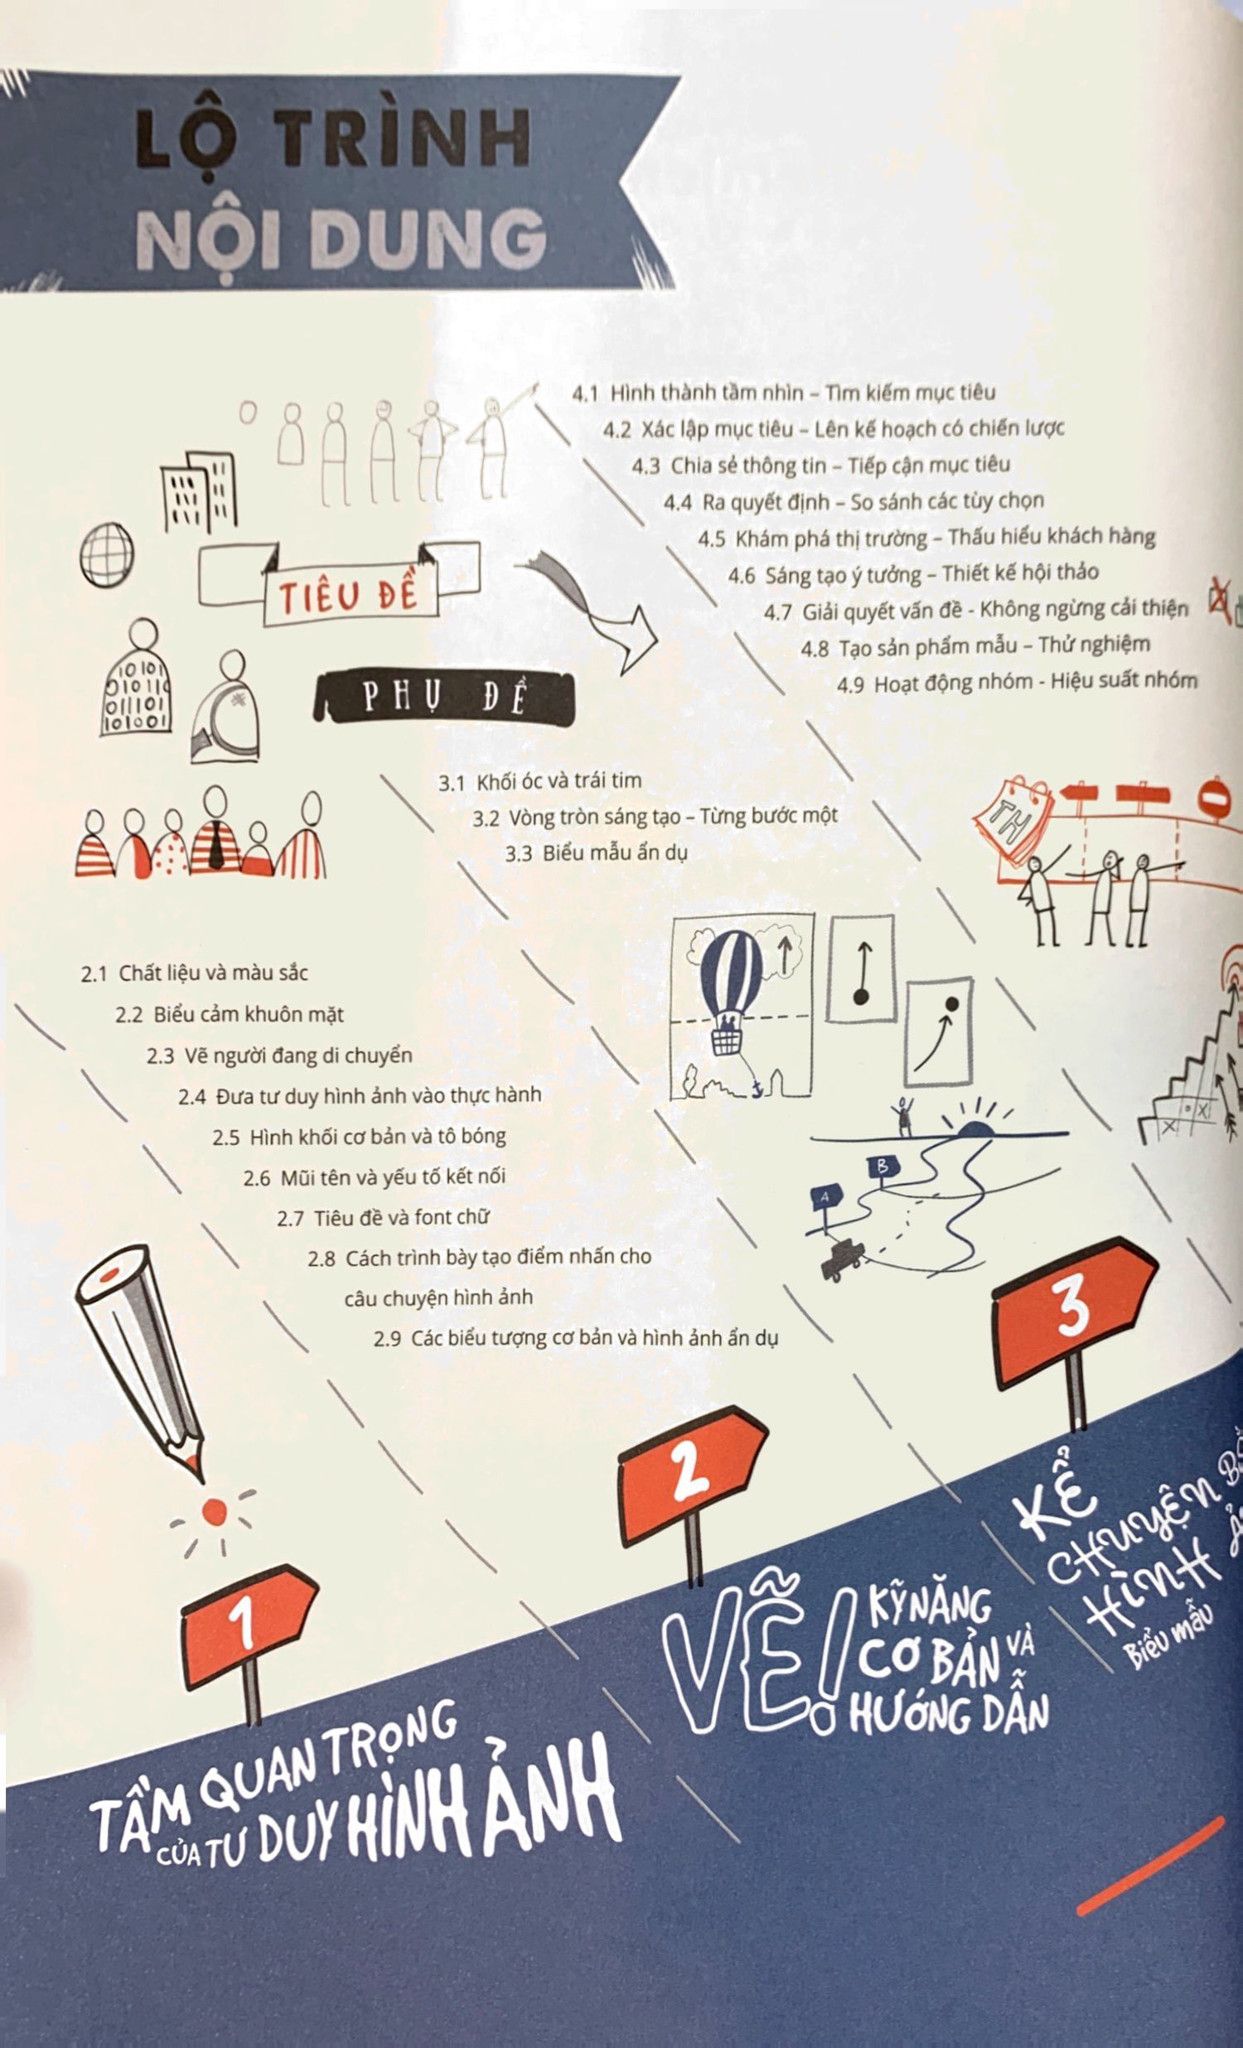 LỘ TRÌNH
NỘI DUNG
4.1 Hình thành tầm nhìn – Tìm kiếm mục tiêu
4.2 Xác lập mục tiêu – Lên kế hoạch có chiến lược
4.3 Chia sẻ thông tin – Tiếp cận mục tiêu
4.4 Ra quyết định – So sánh các tùy chọn
4.5 Khám phá thị trường – Thấu hiểu khách hàng
4.6 Sáng tạo ý tưởng – Thiết kế hội thảo
4.7 Giải quyết vấn đề - Không ngừng cải thiện
4.8 Tạo sản phẩm mẫu – Thử nghiệm
4.9 Hoạt động nhóm - Hiệu suất nhóm
TIÊU ĐỀ
PHỤ ĐỀ
10101
010110
011101
101001
3.1 Khối óc và trái tim
3.2 Vòng tròn sáng tạo – Từng bước một
3.3 Biểu mẫu ẩn dụ
TH
2.1 Chất liệu và màu sắc
2.2 Biểu cảm khuôn mặt
2.3 Vẽ người đang di chuyển
2.4 Đưa tư duy hình ảnh vào thực hành
2.5 Hình khối cơ bản và tô bóng
2.6 Mũi tên và yếu tố kết nối
2.7 Tiêu đề và font chữ
2.8 Cách trình bày tạo điểm nhấn cho
câu chuyện hình ảnh
2.9 Các biểu tượng cơ bản và hình ảnh ẩn dụ
B
A
X
X
1
TẦM QUAN TRỌNG
CỦA TƯ DUY HÌNH ẢNH
2
VẼ!
KỸ NĂNG
CƠ BẢN VÀ
HƯỚNG DẪN
3
KỂ
CHUYỆN
HÌNH
Biểu mẫu